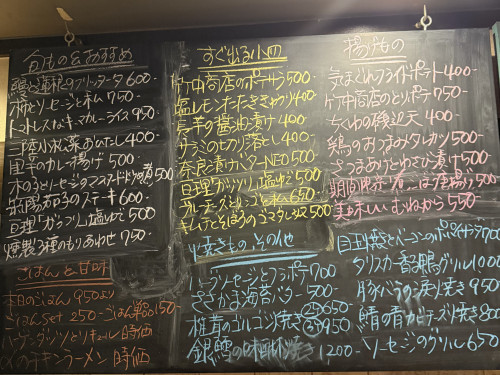 旬もの&おすすめ
鰻と蓮根のフリッタータ 600-
ソーセージと 750-
トマトレスなキーマカレーライス 950-
三陸小松菜おひたし 400-
里芋のカレー揚げ 500
木の子とソーセージのマスタード炒め煮 500
茄子のステーキ 600-
旦理「ガッツリ」塩ゆで 500
燻製3種のもりあわせ 750-
すぐ出る小皿
竹中商店のポテサラ 500-
塩レモンたたききゅうり 400-
長芋の醤油漬け 400-
サラミの切り落とし 400-
奈良漬けバターNEO 500-
旦理「ガッツリ」塩ゆで 500-
ブルーチーズとりんご 650-
きんぴらごぼうのゴマタレ 500-
揚げもの
気まぐれフライドポテト 400-
竹中商店のとりポテ 750-
ちくわの磯辺天 400-
鶏のおつまみタレカツ 500-
さつまあげとわさび漬け 500-
期間限定 ごぼう唐揚げ 500-
美味しいむねから 550-
ごはんと甘味
本日のごはん 950より
ごはんset 250- ごはん単品 150-
ハーゲンダッツとリキュール 時価
〆のチキンラーメン 時価
焼きもの、その他
ハーブソーセージとフラポテ 700
ささかま海苔バター 500-
椎茸のゴルゴンゾーラ焼き 650 950
銀鱈の味醂焼き 1,200-
目玉焼きとベーコンのポテサラ 700
タリスカー香る鴨のグリル 1000
豚バラの炙り焼き 950
鯖の青ガーリックチーズ焼き 800
ソーセージのグリル 650